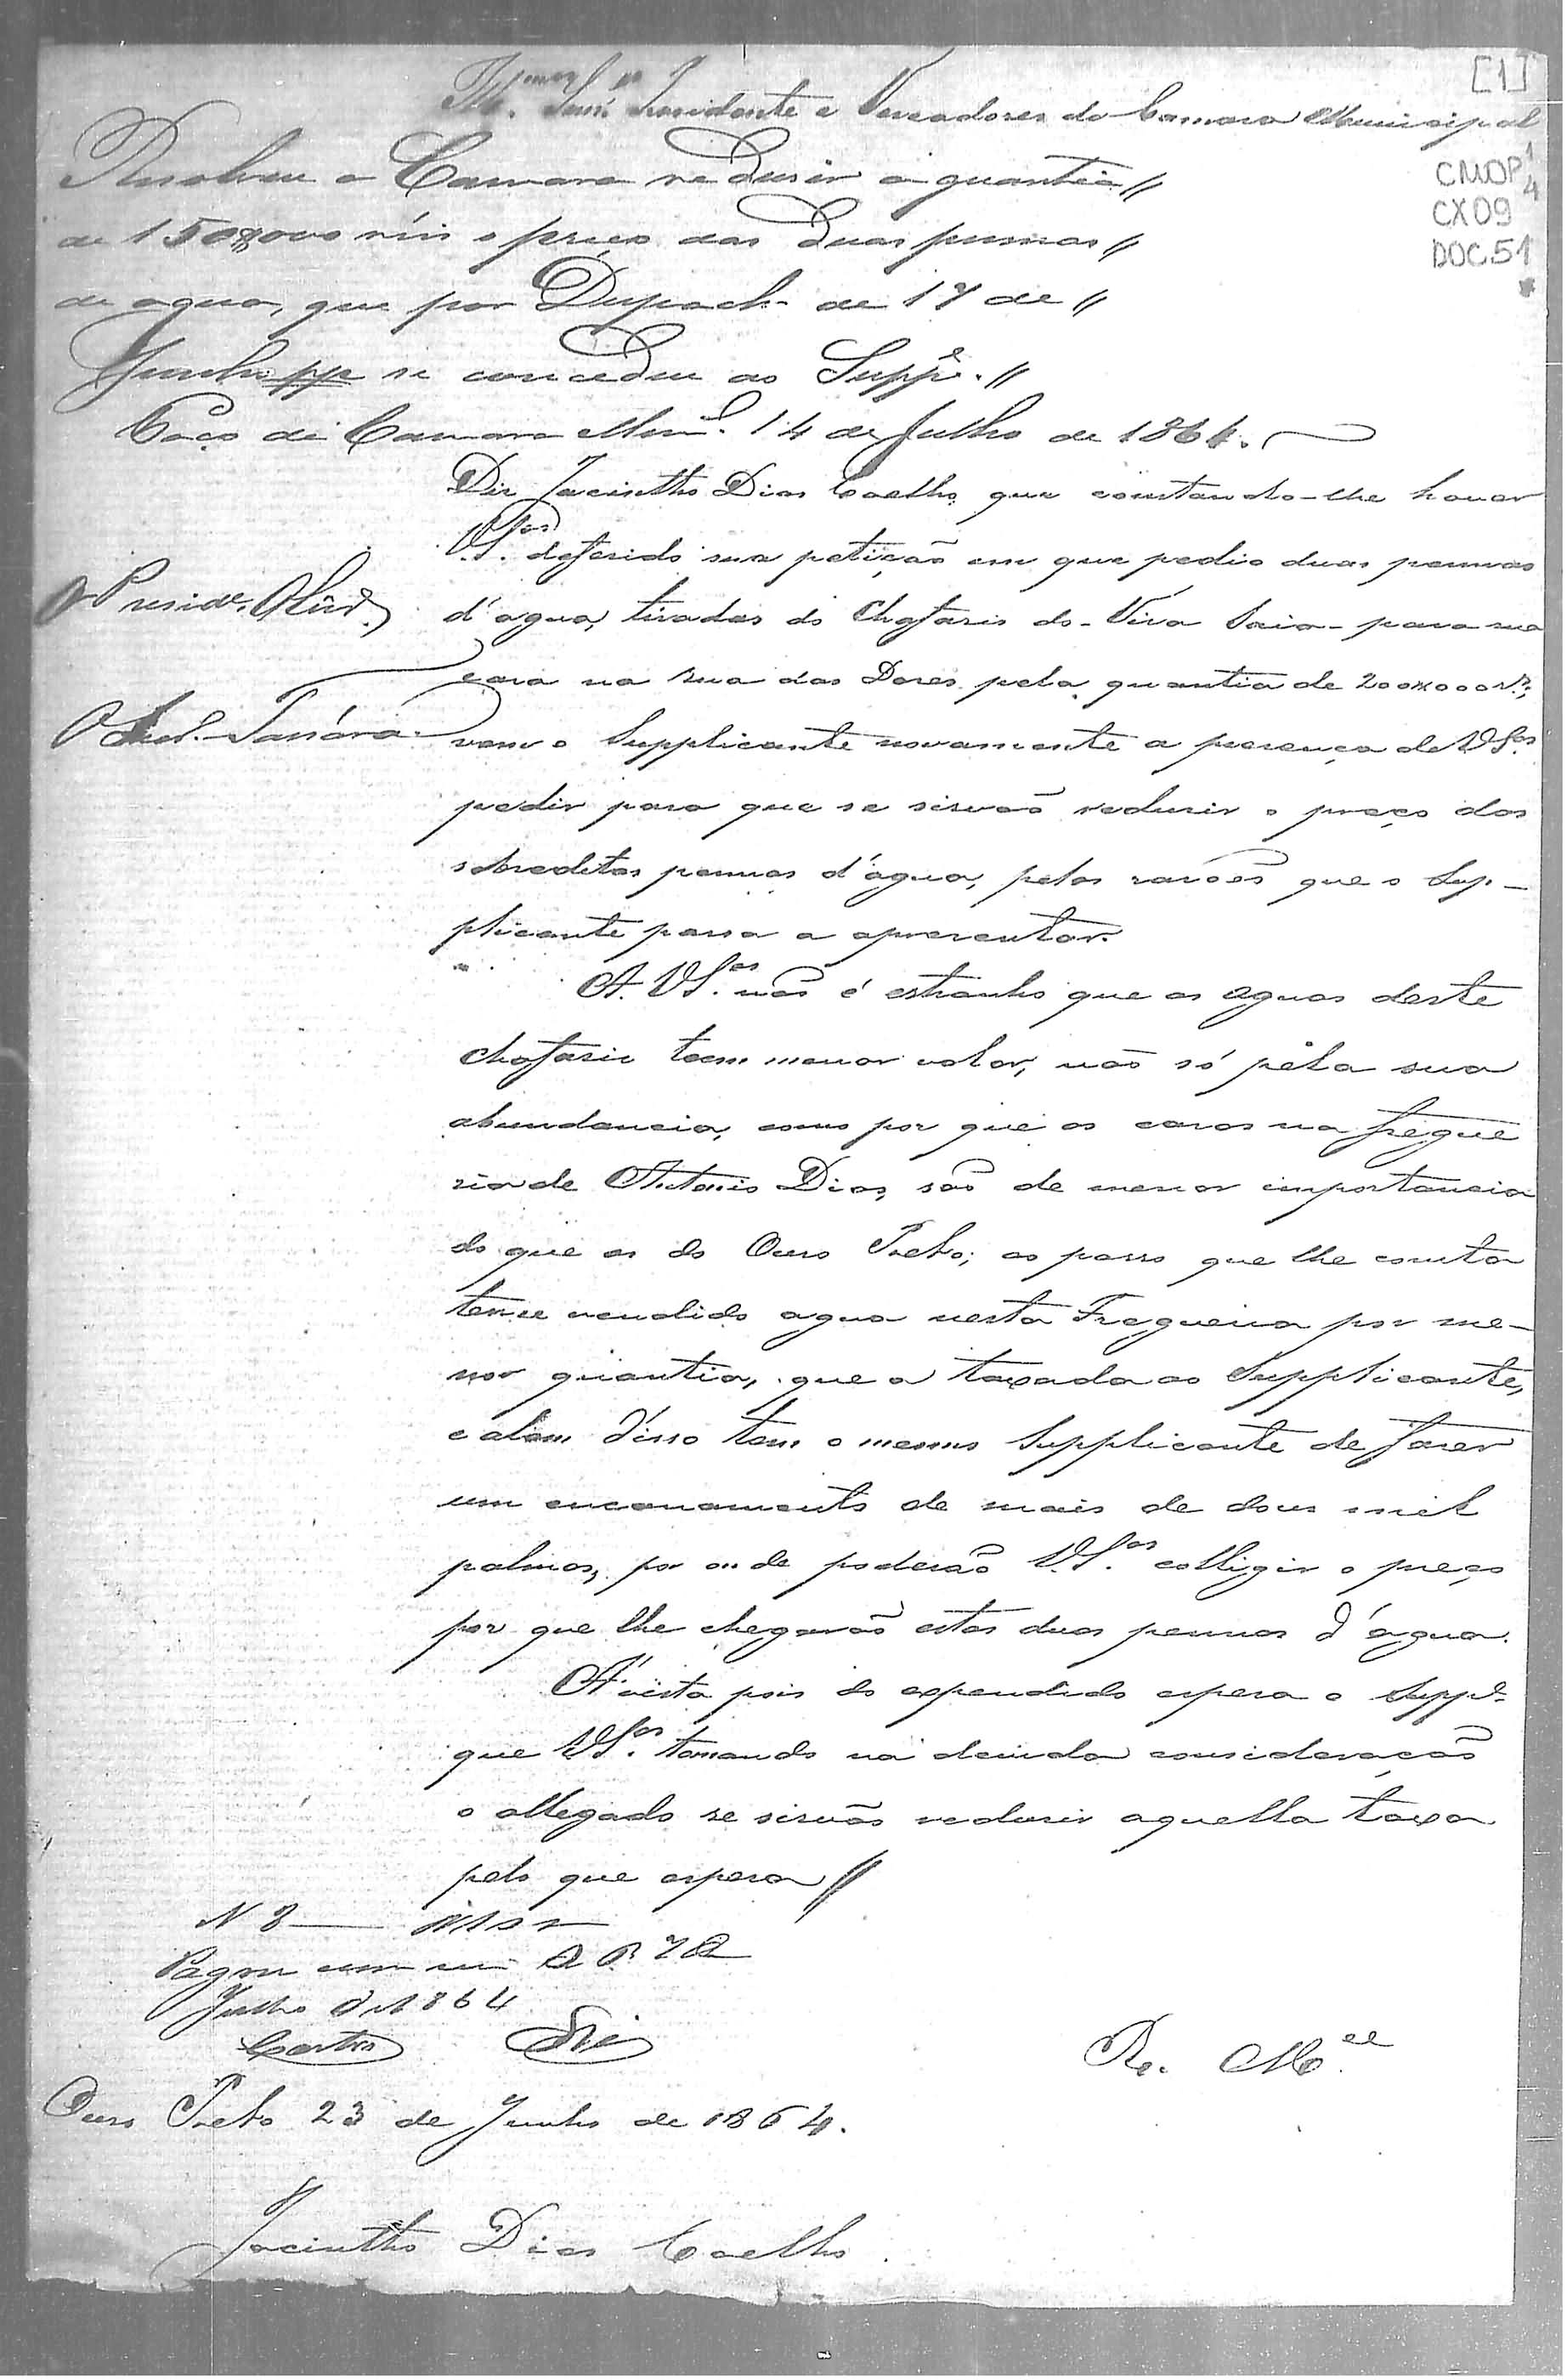 [1]
Ill.mos Snr.es Presidente e Vereadores da Camara Municipal
CMOP 1
4
CX 09
DOC. 51
Resolveu a Camara redusir á quantia //
de 150$000 réis o preço das duas pennas //
de agua, que por Despach. de 17 de //
Junho pp se concedeu ao Supp.e //
Paço da Camara Mun.al 14 de Julho de 1864.
Diz Jacintho Dias Coelho, que constando-lhe haver
V.S.as deferido sua petição em que pedio duas pennas
O Presid.e
d'agua, tiradas do Chafaris do - Vira Saia - para sua
casa na rua das Dores pela quantia de 200$000 r.s,
O Secr.
vem o Supplicante novamente a presença de V.S.as
pedir para que se sirvão redusir o preço das
sobreditas pennas d'agua, pelas rasões que o Sup-
plicante passa a apresentar.
A V.S.as não é estranho que as aguas deste
chafaris teem menor valor, não só pela sua
abundancia, como por que as casas na fregue
sia de Antonio Dias, são de menor importancia
do que as do Ouro Preto; ao passo que lhe consta
ter-se vendido agua nesta Freguesia por me-
nor quantia, que a taxada ao Supplicante,
e alem d'isso tem o mesmo Supplicante de faser
um encanamento de mais de dous mil
palmos, por onde poderão V.S.as colligir o preço
por que lhe chegarão estas duas pennas d'agua.
Á vista pois do expendido espera o Supp.e
que V.S.as tomando na devida consideração
o allegado se sirvão redusir aquella taxa
pelo que espera //
N 8
Pagou O P.
Julho d 1864
Castro
R. M.ce
Ouro Preto 23 de Junho de 1864.
Jacintho Dias Coelho.